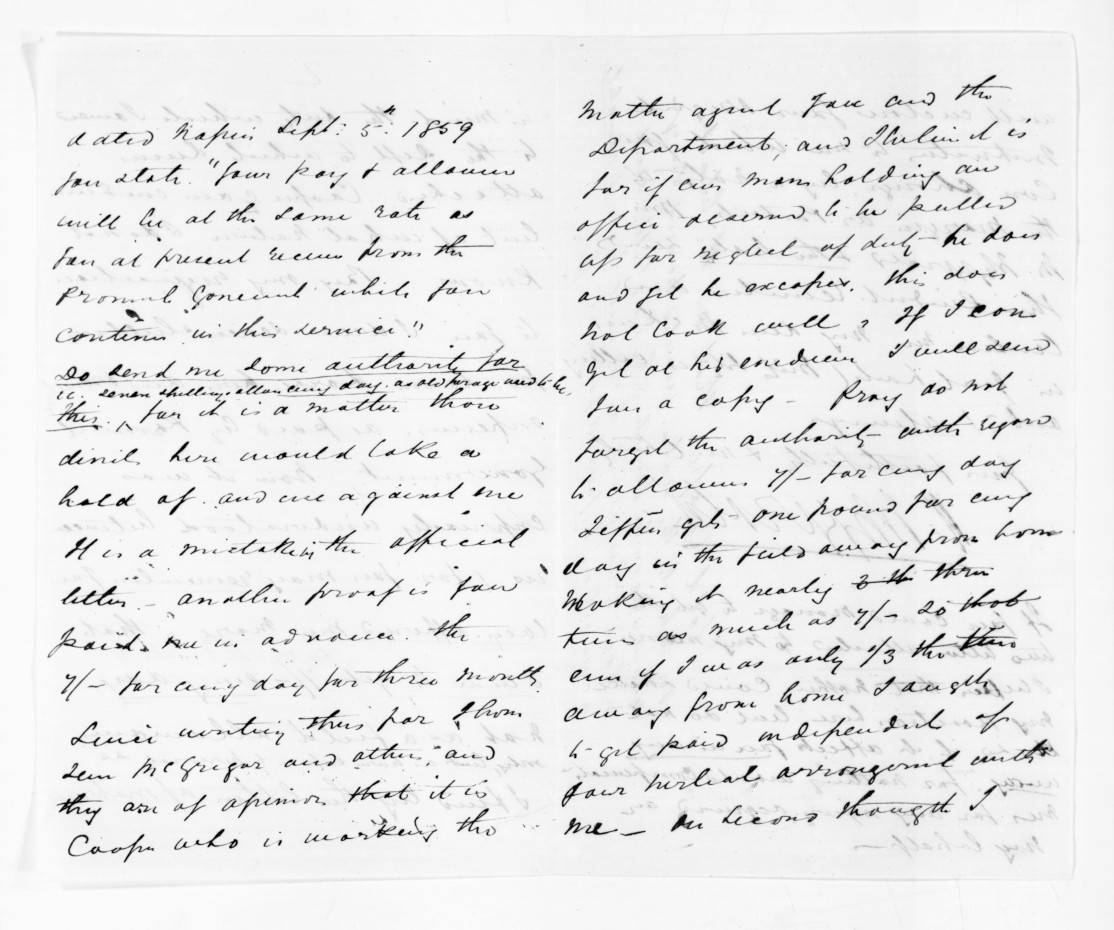 dated Napier Sept: 5th: 1859
you state. "Your pay & allowance
will be at the same rate as
you at present receive from the
Provincial Goverment while you
continue in this service"
Do send me some authority for
ie. seven shillings allowance every day. as old forage used to be.
this. for it is a matter those
divils here would take a
hold of. and use against me
It is a mistake in the official
letter - another proof is your
paid me in advance the
7/- for every day for three months.
Since writing thus far I have
seen McGrigor and others and
they are of opinion that it is
Cooper who is working the
matter against you and the
Department, and I believe it is
for if ever man holding an
office deserved to be pulled
up for neglect of duty he does
and yet he escapes. This does
not look well, If I can
get at his evidence I will send
you a copy - Pray do not
forget the authority with regard
to allowance 7/- for every day
gets one pound for every
day in the field away from home
making it nearly 3 th three
times as much as 7/- So that
even if I was only 1/3 the time
away from home I aught
to get paid independent of
your verbal arrangement with
me - On second thought I